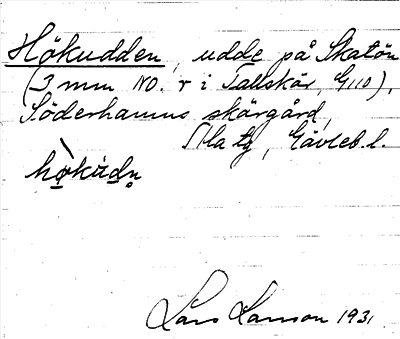 Hökudden, udde på Skatön
(3 mm NO. r i Tallskär, G110),
Söderhamns skärgård,
Hla tg, Gävleb. l.
hökùdn̥
Lars Larsson 1931